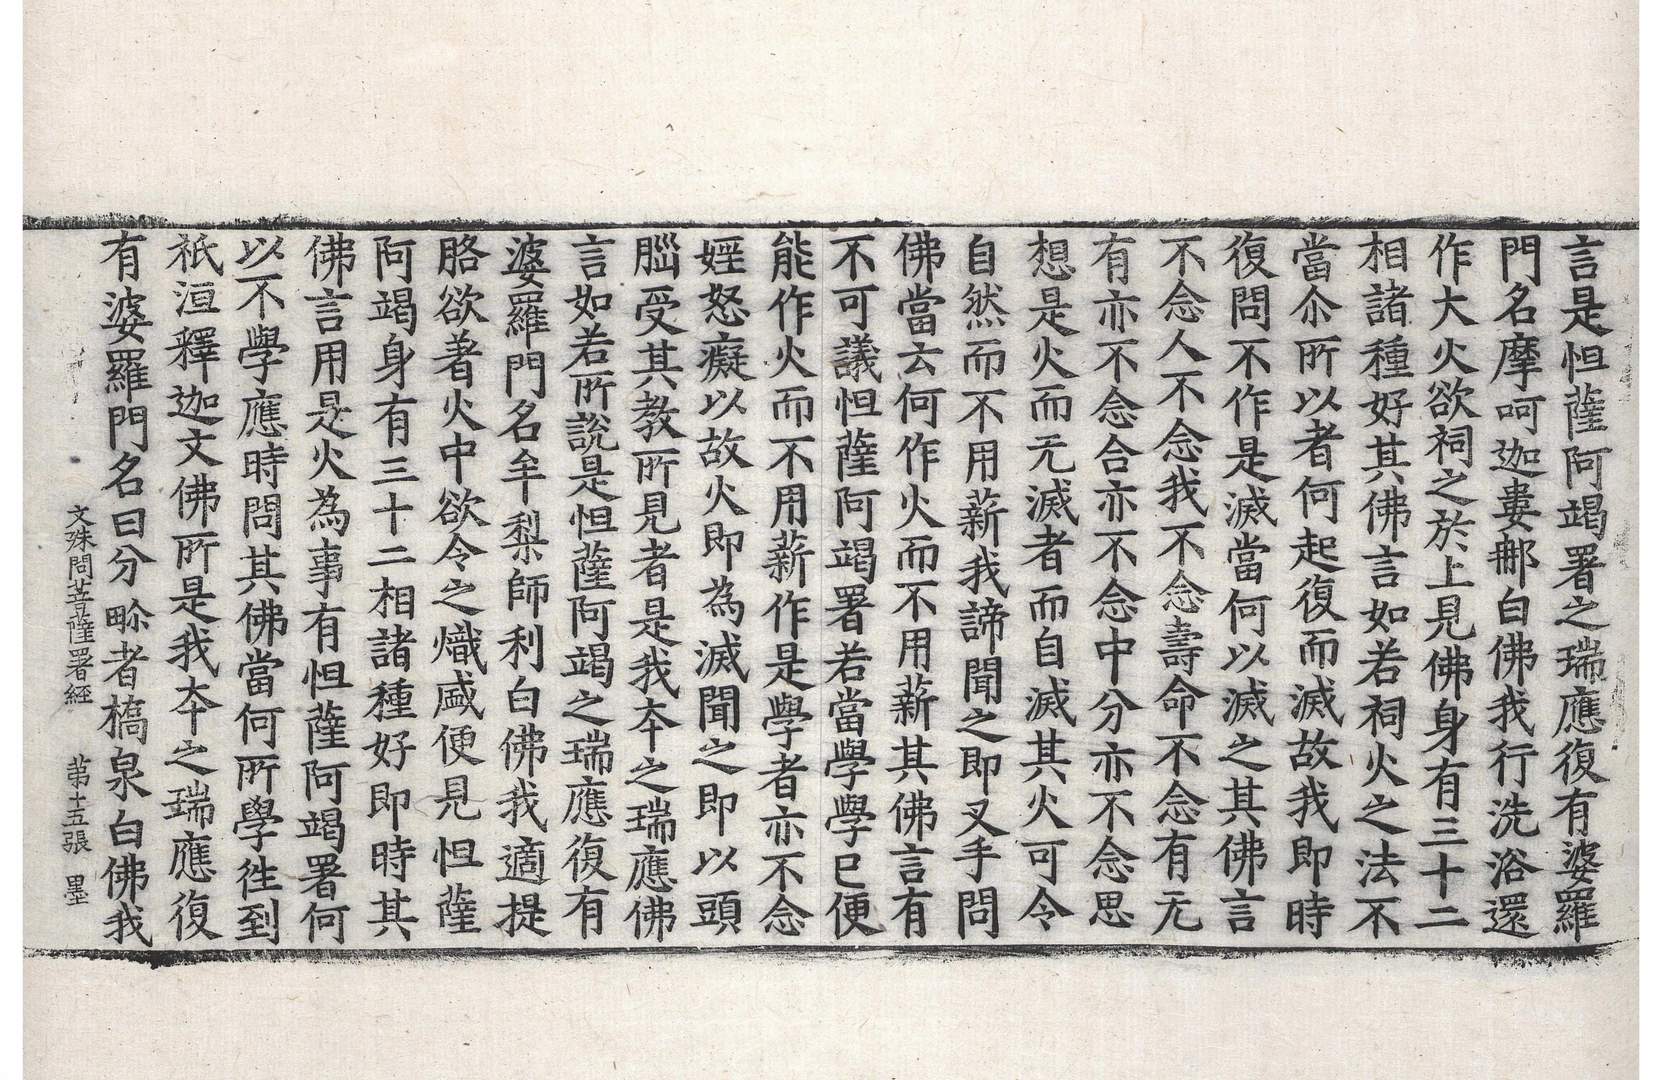 言是怛薩阿竭署之瑞應復有婆羅
門名摩呵迦婁那白佛我行洗浴還
作大火欲祠之於上見佛身有三十二
相諸種好其佛言如若祠火之法不
當尒所以者何起復而滅故我即時
復問不作是滅當何以滅之其佛言
不念人不念我不念壽命不念有无
有亦不念合亦不念中分亦不念思
想是火而无滅者而自滅其火可令
自然而不用薪我諦聞之即叉手問
佛當云何作火而不用薪其佛言有
不可議怛薩阿竭署若當學學已便
能作火而不用薪作是學者亦不念
婬怒癡以故火即為滅聞之即以頭
腦受其教所見者是我本之瑞應佛
言如若所說是怛薩阿竭之瑞應復有
婆羅門名牟梨師利白佛我適提
酪欲著火中欲令之熾盛便見怛薩
阿竭身有三十二相諸種好即時其
佛言用是火為事有怛薩阿竭署何
以不學應時問其佛當何所學徃到
祇洹釋迦文佛所是我本之瑞應復
有婆羅門名曰分𣇄者橋泉白佛我
文殊問菩薩署經 第十五張 墨